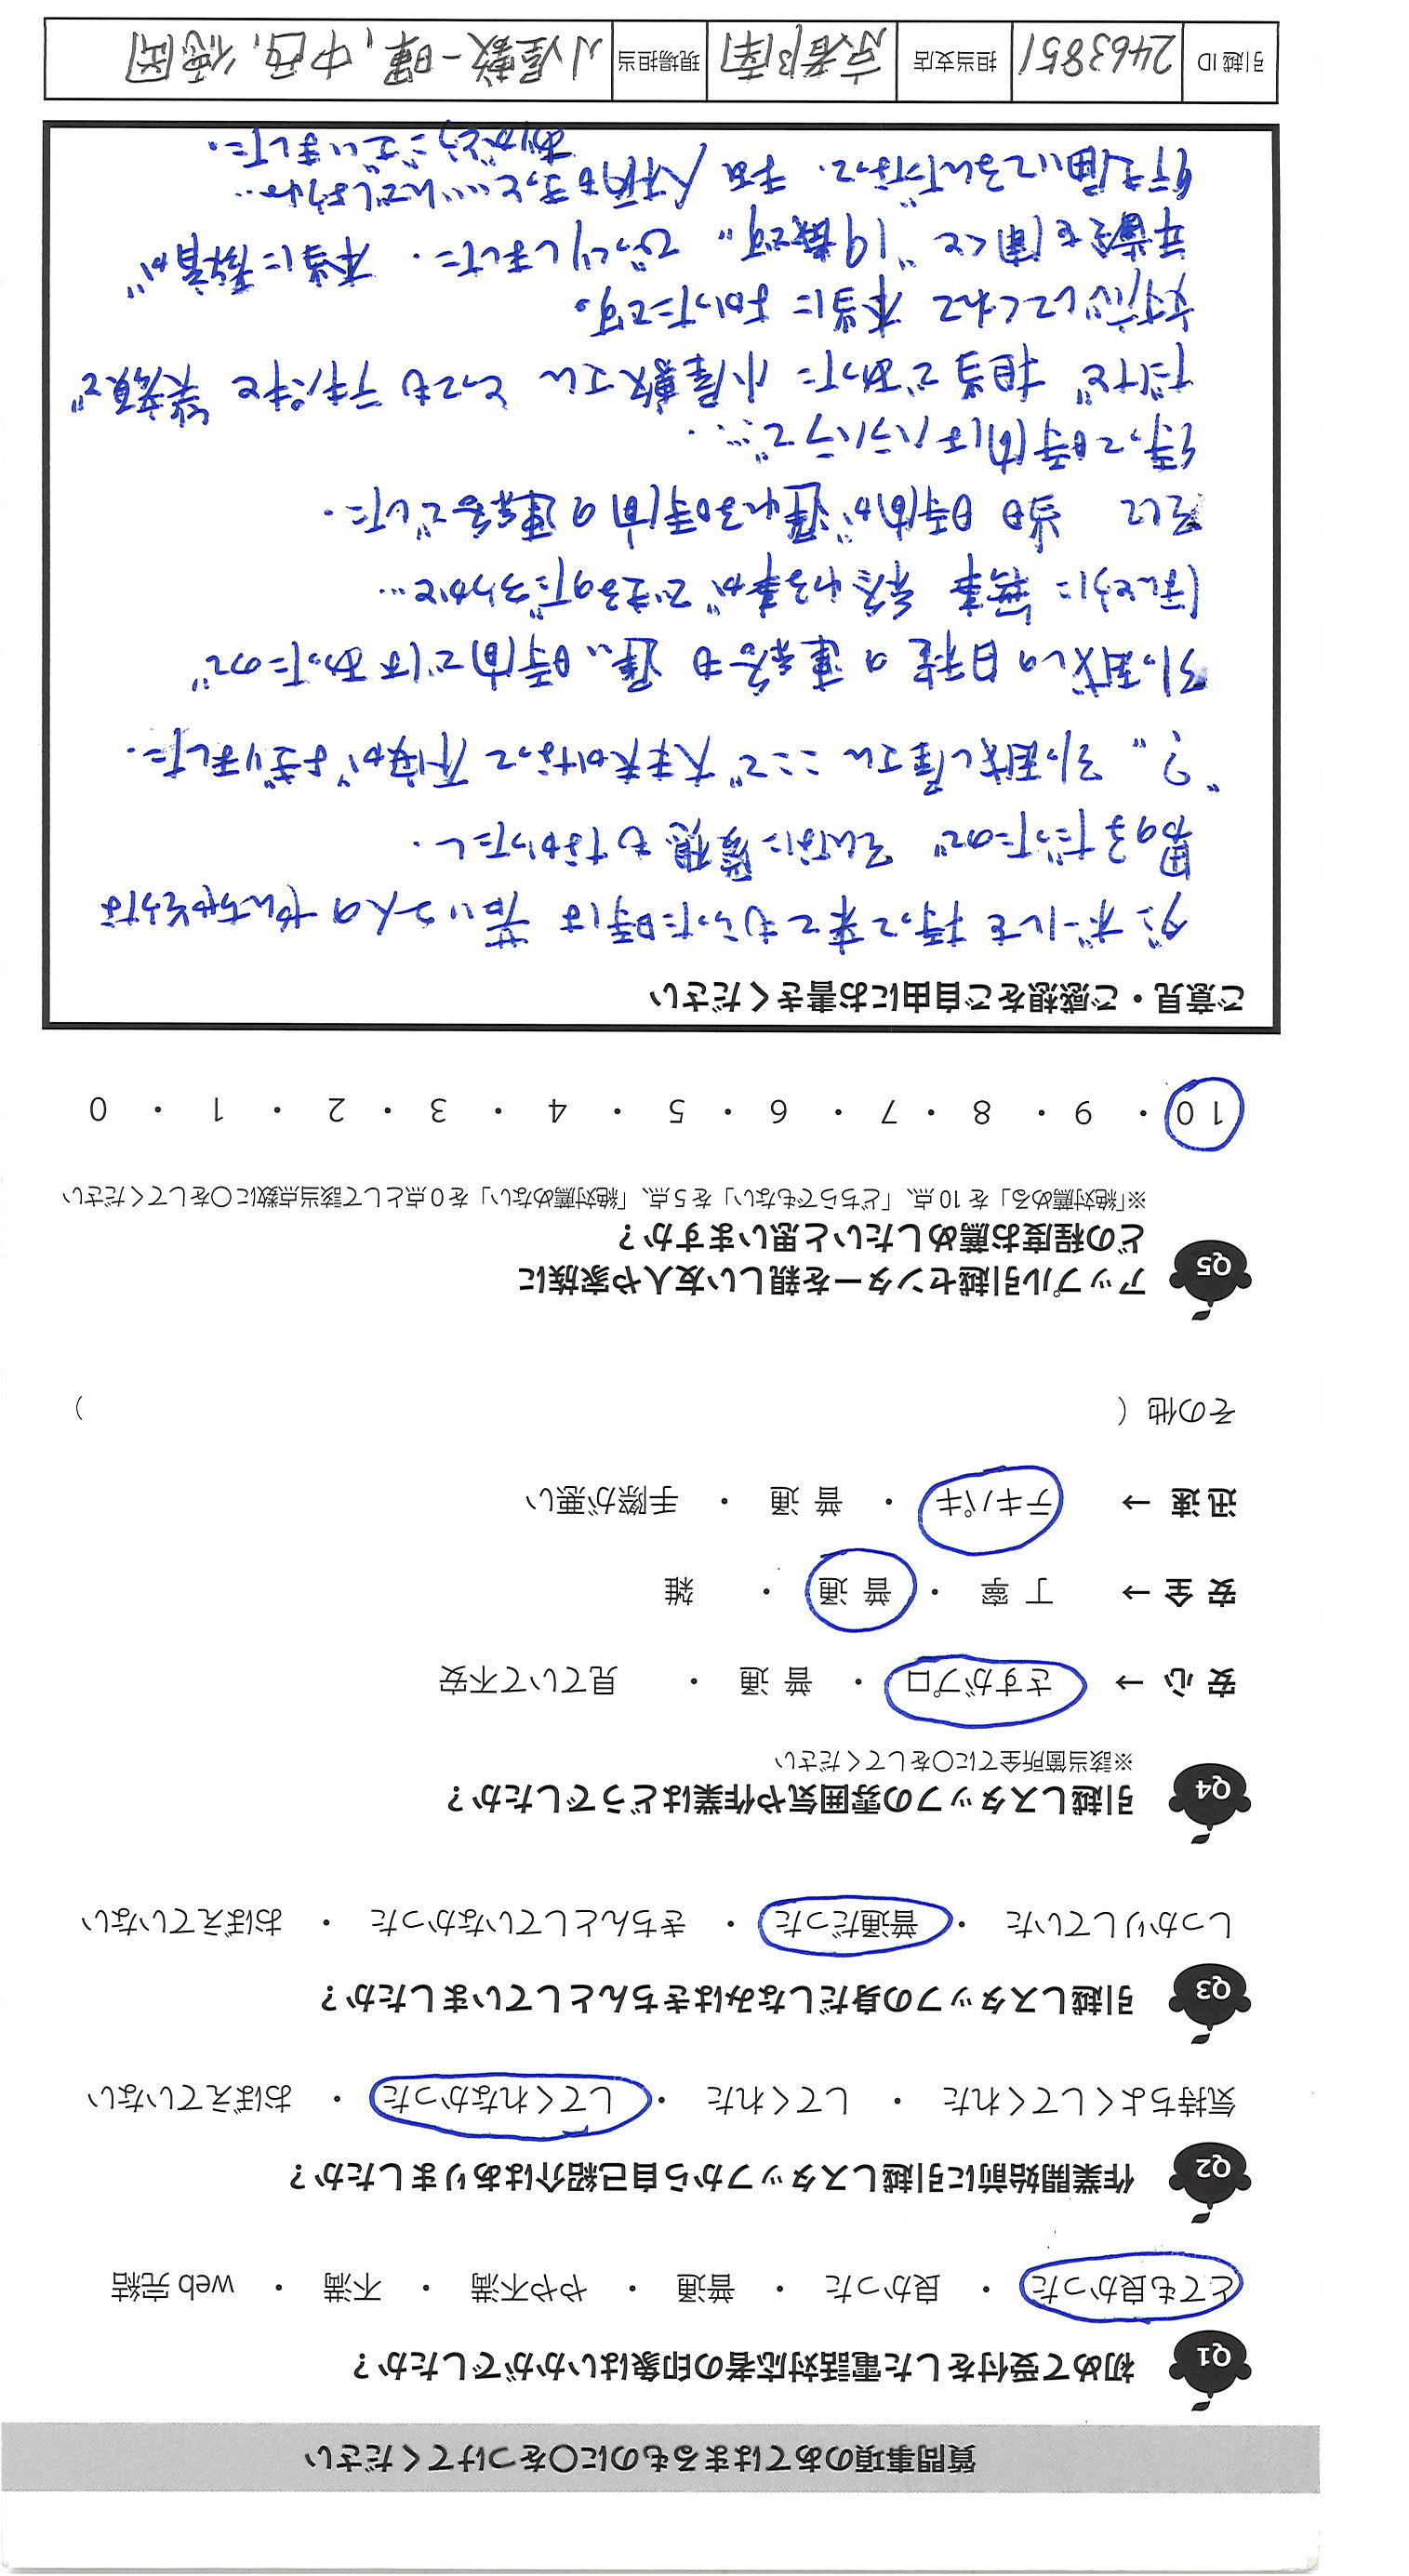 質問事項のあてはまるものに○をつけてください
Q1 初めて受付をした電話対応者の印象はいかがでしたか？
とても良かった ・ 良かった ・ 普通 ・ やや不満 ・ 不満 ・ web 完結
Q2 作業開始前に引越しスタッフから自己紹介はありましたか？
気持ちよくしてくれた ・ してくれた ・ してくれなかった ・ おぼえていない
Q3 引越しスタッフの身だしなみはきちんとしていましたか？
しっかりしていた ・ 普通だった ・ きちんとしていなかった ・ おぼえていない
Q4 引越しスタッフの雰囲気や作業はどうでしたか？
※該当箇所全てに○をしてください
安 心 → さすがプロ ・ 普 通 ・ 見ていて不安
安 全 → 丁 寧 ・ 普 通 ・ 雑
迅 速 → テキパキ ・ 普 通 ・ 手際が悪い
その他（ ）
Q5 アップル引越センターを親しい友人や家族に
どの程度お薦めしたいと思いますか？
※「絶対薦める」を 10 点、「どちらでもない」を 5 点、「絶対薦めない」を 0 点として該当点数に○をしてください
10 ・ 9 ・ 8 ・ 7 ・ 6 ・ 5 ・ 4 ・ 3 ・ 2 ・ 1 ・ 0
ご意見・ご感想をご自由にお書きください
ダンボールを持って来てもらった時は 若い2人のやんちゃそうな
男の子だったので そんなに愛想もなかったし．
"？" 引っ越し屋さん ここで大丈夫かなって 不安がよぎりました．
引っ越しの日程の連絡も 遅い時間ではあったので
ほんとうに 無事 終わる事ができるのだろうかと…
更に 当日 時間が遅れる時間の連絡でした．
待って時間はハラハラで…．
だけど 担当であった 小屋敷さん とっても テキパキと 笑顔で
対応してくれて 本当に よかったです。
年齢を聞くと "19歳です" びっくりしました． 本当に教育が
行き届いてるんだなって． 子 人柄もきっといいんでしょうね…
ありがとうございました。
引越 ID 2463851 担当支店 京都南 現場担当 小屋敷一暉, 中西, 徳岡